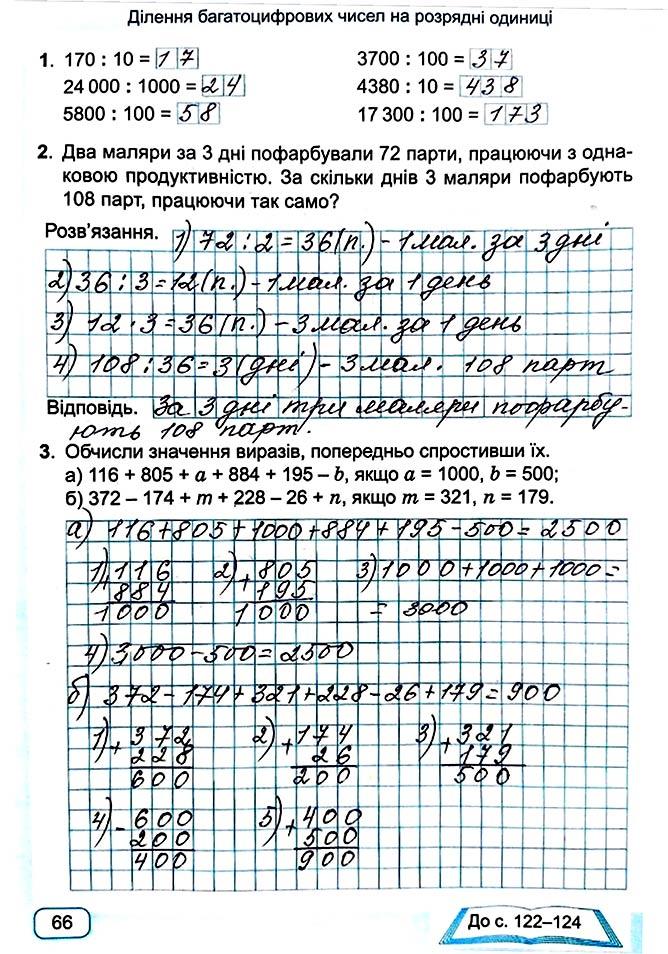 Ділення багатоцифрових чисел на розрядні одиниці
1. 170 : 10 = 17 3700 : 100 = 37
24 000 : 1000 = 24 4380 : 10 = 438
5800 : 100 = 58 17 300 : 100 = 173
2. Два маляри за 3 дні пофарбували 72 парти, працюючи з одна-
ковою продуктивністю. За скільки днів 3 маляри пофарбують
108 парт, працюючи так само?
Розв'язання. 1) 72 : 2 = 36 (п.) - 1 мал. за 3 дні
2) 36 : 3 = 12 (п.) - 1 мал. за 1 день
3) 12 · 3 = 36 (п.) - 3 мал. за 1 день
4) 108 : 36 = 3 (дні) - 3 мал. 108 парт
Відповідь. За 3 дні три маляри пофарбу-
ють 108 парт.
3. Обчисли значення виразів, попередньо спростивши їх.
а) 116 + 805 + a + 884 + 195 – b, якщо a = 1000, b = 500;
б) 372 – 174 + m + 228 – 26 + n, якщо m = 321, n = 179.
а) 116 + 805 + 1000 + 884 + 195 - 500 = 2500
1) +116 2) +805 3) 1000 + 1000 + 1000 =
884 195
1000 1000 = 3000
4) 3000 - 500 = 2500
б) 372 - 174 + 321 + 228 - 26 + 179 = 900
1) +372 2) +174 3) +321
228 26 179
600 200 500
4) -600 5) +400
200 500
400 900
66 До с. 122–124